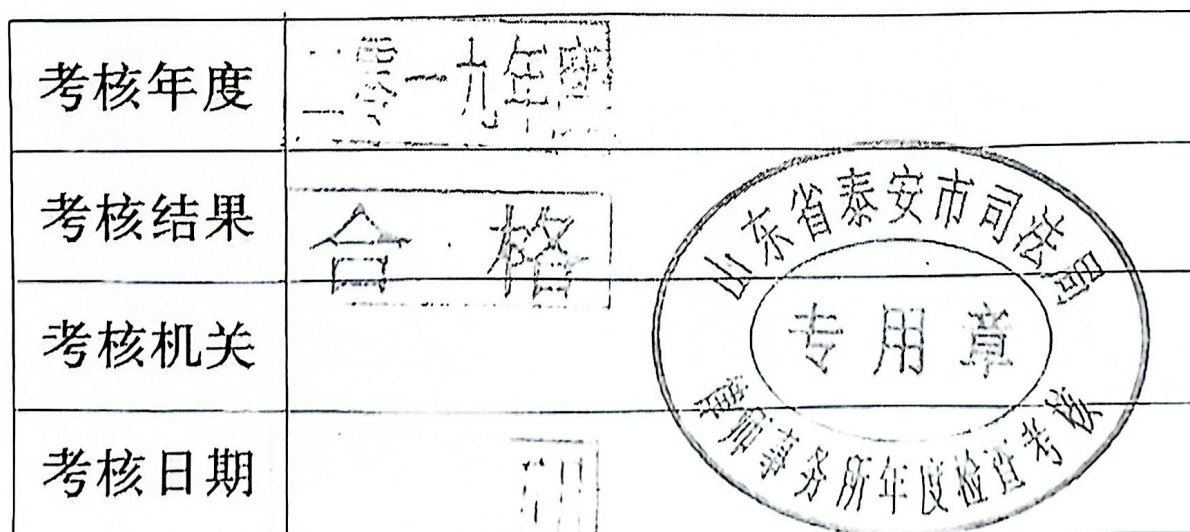 考核年度 二零一九年度
考核结果 合 格
考核机关
考核日期
山东省泰安市司法局
专用章
律师事务所年度检查考核